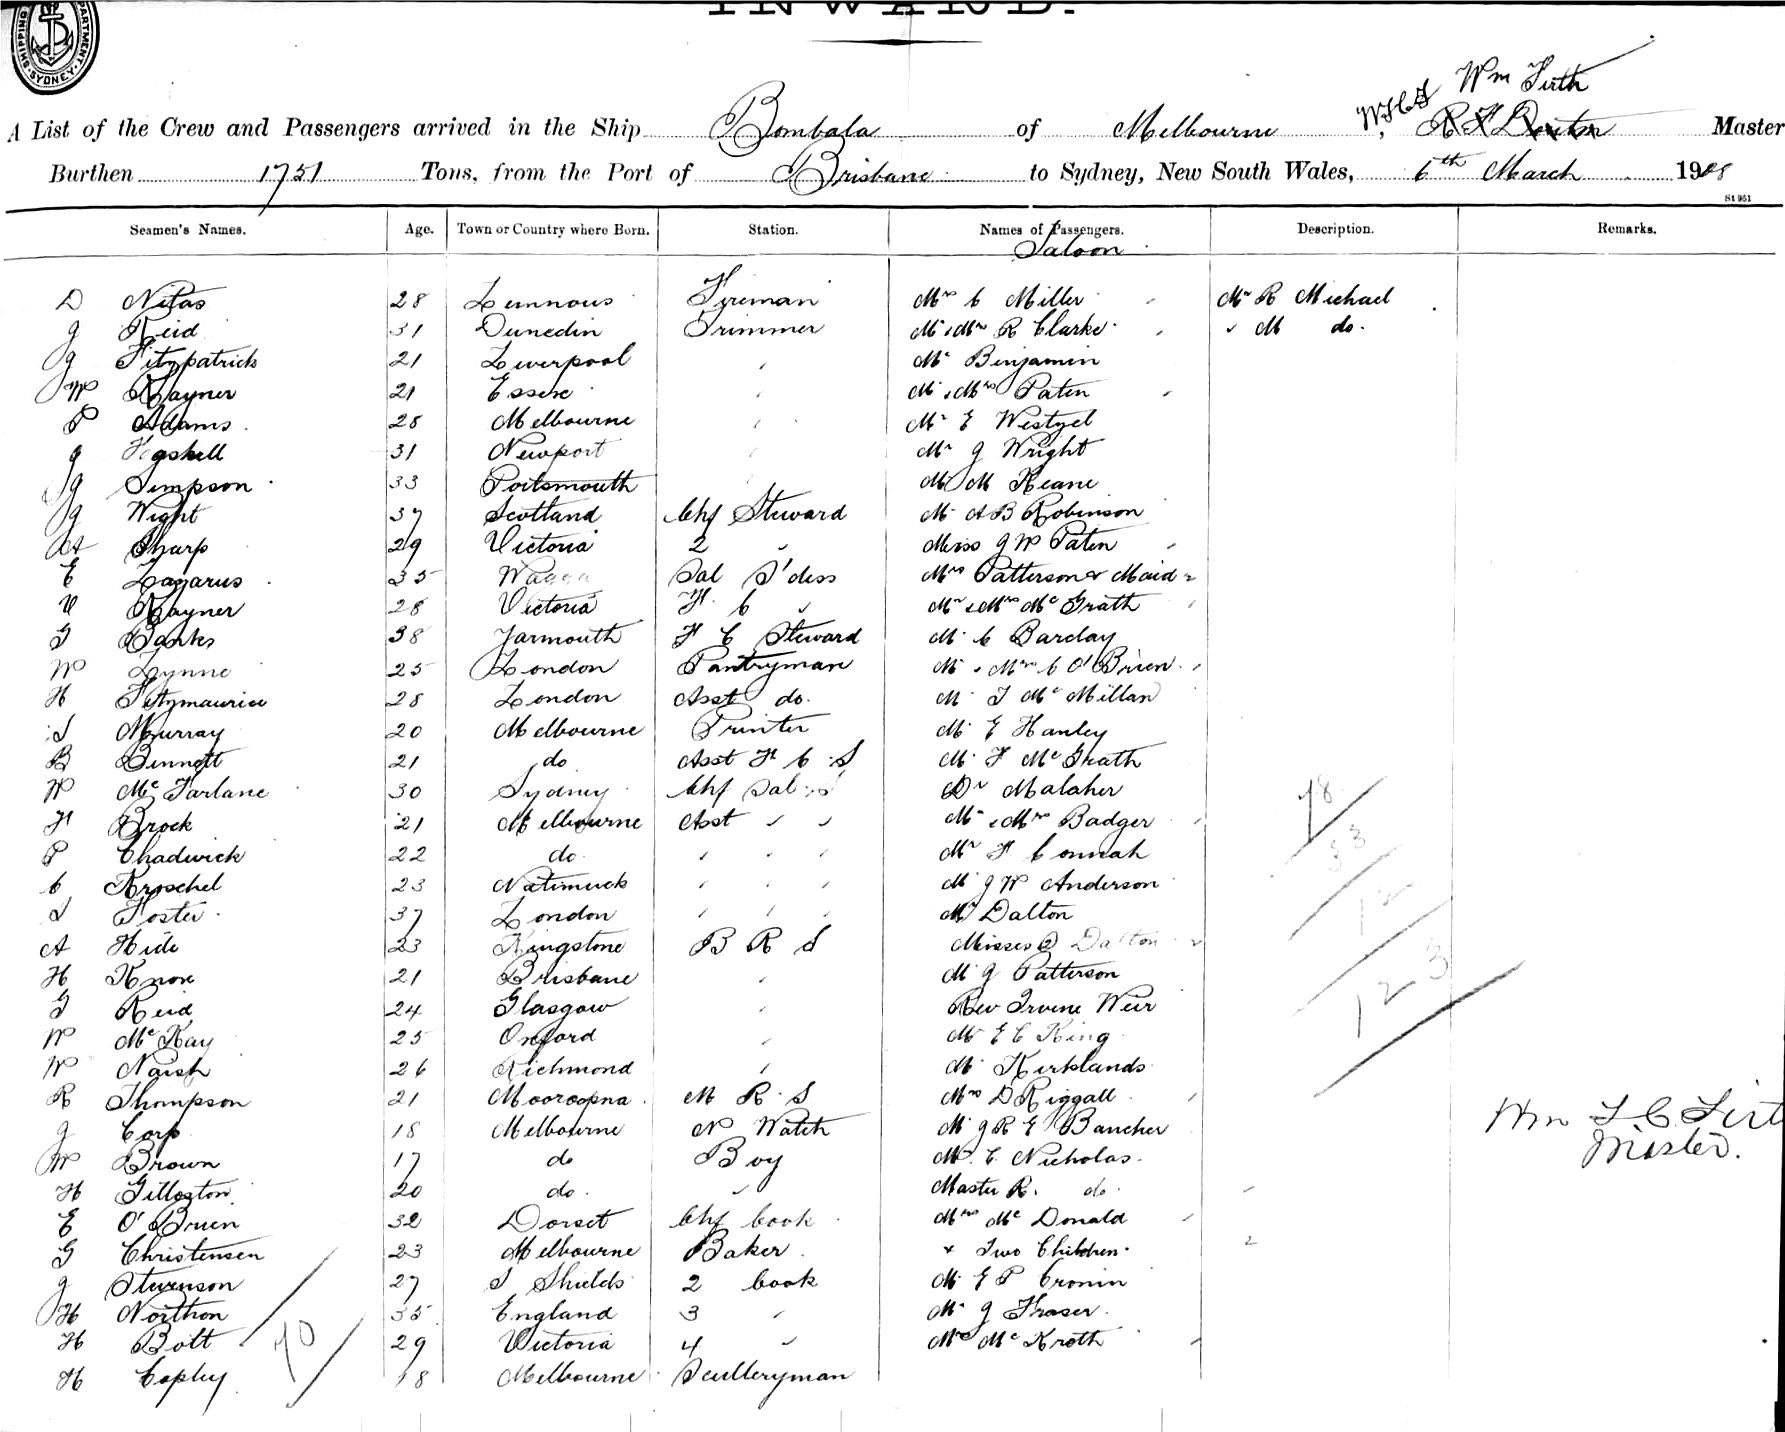 INWARD.
SHIPPING DEPARTMENT SYDNEY
Wm Firth
A List of the Crew and Passengers arrived in the Ship Bombala of Melbourne Master
Burthen 1751 Tons, from the Port of Brisbane to Sydney, New South Wales, 6th March 1908
St 951
Seamen's Names. Age. Town or Country where Born. Station. Names of Passengers. Description. Remarks.
Saloon
D Nitas 28 Lemnous Fireman Mrs C Miller Mr R Michael
J Reid 31 Dunedin Trimmer Mr & Mrs R Clarke " M do.
J Fitzpatrick 21 Liverpool " Mr Benjamin
W Rayner 21 Essex " Mr & Mrs Paten
P Adams 28 Melbourne " Mr E Westzel
J 31 Newport " Mr J Wright
J Simpson 33 Portsmouth " Mr M Keane
J Wight 37 Scotland Chf Steward Mr A B Robinson
A Sharp 29 Victoria 2 " Miss J W Paten
E Lazarus 35 Wagga Sal S'dess Mrs Patterson & Maid 2
V Rayner 28 Victoria F. C " Mr & Mrs McGrath
G Banks 38 Yarmouth F C Steward Mr C Barclay
W Lynne 25 London Pantryman Mr & Mrs C O'Brien
H Fitzmaurice 28 London Asst do. Mr T McMillan
S Murray 20 Melbourne Printer Mr E Hanley
B Binnett 21 do Asst F C S Mr F McGrath
W McFarlane 30 Sydney Chf Sal S Dr Malaher
F Brock 21 Melbourne Asst " " Mr & Mrs Badger
P Chadwick 22 do " " " Mr F Connah
C Kroschel 23 Natimuck " " " Mr J W Anderson
S Foster 37 London " " " Mr Dalton
A Hide 23 Kingstone B R S Misses (2) Dalton 2
H Knox 21 Brisbane " Mr J Patterson
G Reid 24 Glasgow " Rev Irvine Weir
W McKay 25 Oxford " Mr E C King
W Naish 26 Richmond " Mr Kirklands
R Thompson 21 Mooroopna M R S Mrs D Riggall
J Corp 18 Melbourne N Watch Mr J R E Bancher
W Brown 17 do Boy Mr E Nicholas
H Gilloston 20 do. " Master R. do.
E O'Brien 32 Dorset Chf Cook Mrs McDonald
G Christensen 23 Melbourne Baker & Two Children 2
J Stevenson 27 S Shields 2 Cook Mr E P Cronin
H Northon 35 England 3 " Mr J Fraser
H Bott 29 Victoria 4 " Mrs McKroth
H Copley 18 Melbourne Sculleryman
78
33
12
123
Wm F C Firt
Master.
70